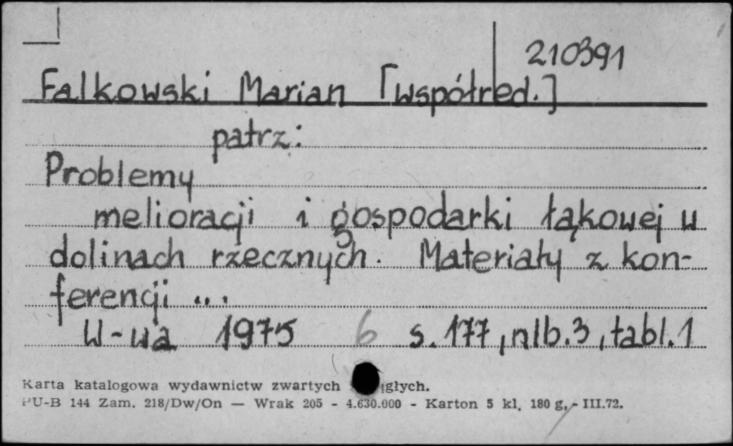 210391
Falkowski Marian [współred.]
patrz:
Problemy
melioracji i gospodarki łąkowej w
dolinach rzecznych. Materiały z kon-
ferencji ...
W-wa 1975 6 s. 177, nlb. 3, tabl. 1
Karta katalogowa wydawnictw zwartych głych.
PU-B 144 Zam. 218/Dw/On — Wrak 205 - 4.630.000 - Karton 5 kl. 180 g. - III.72.